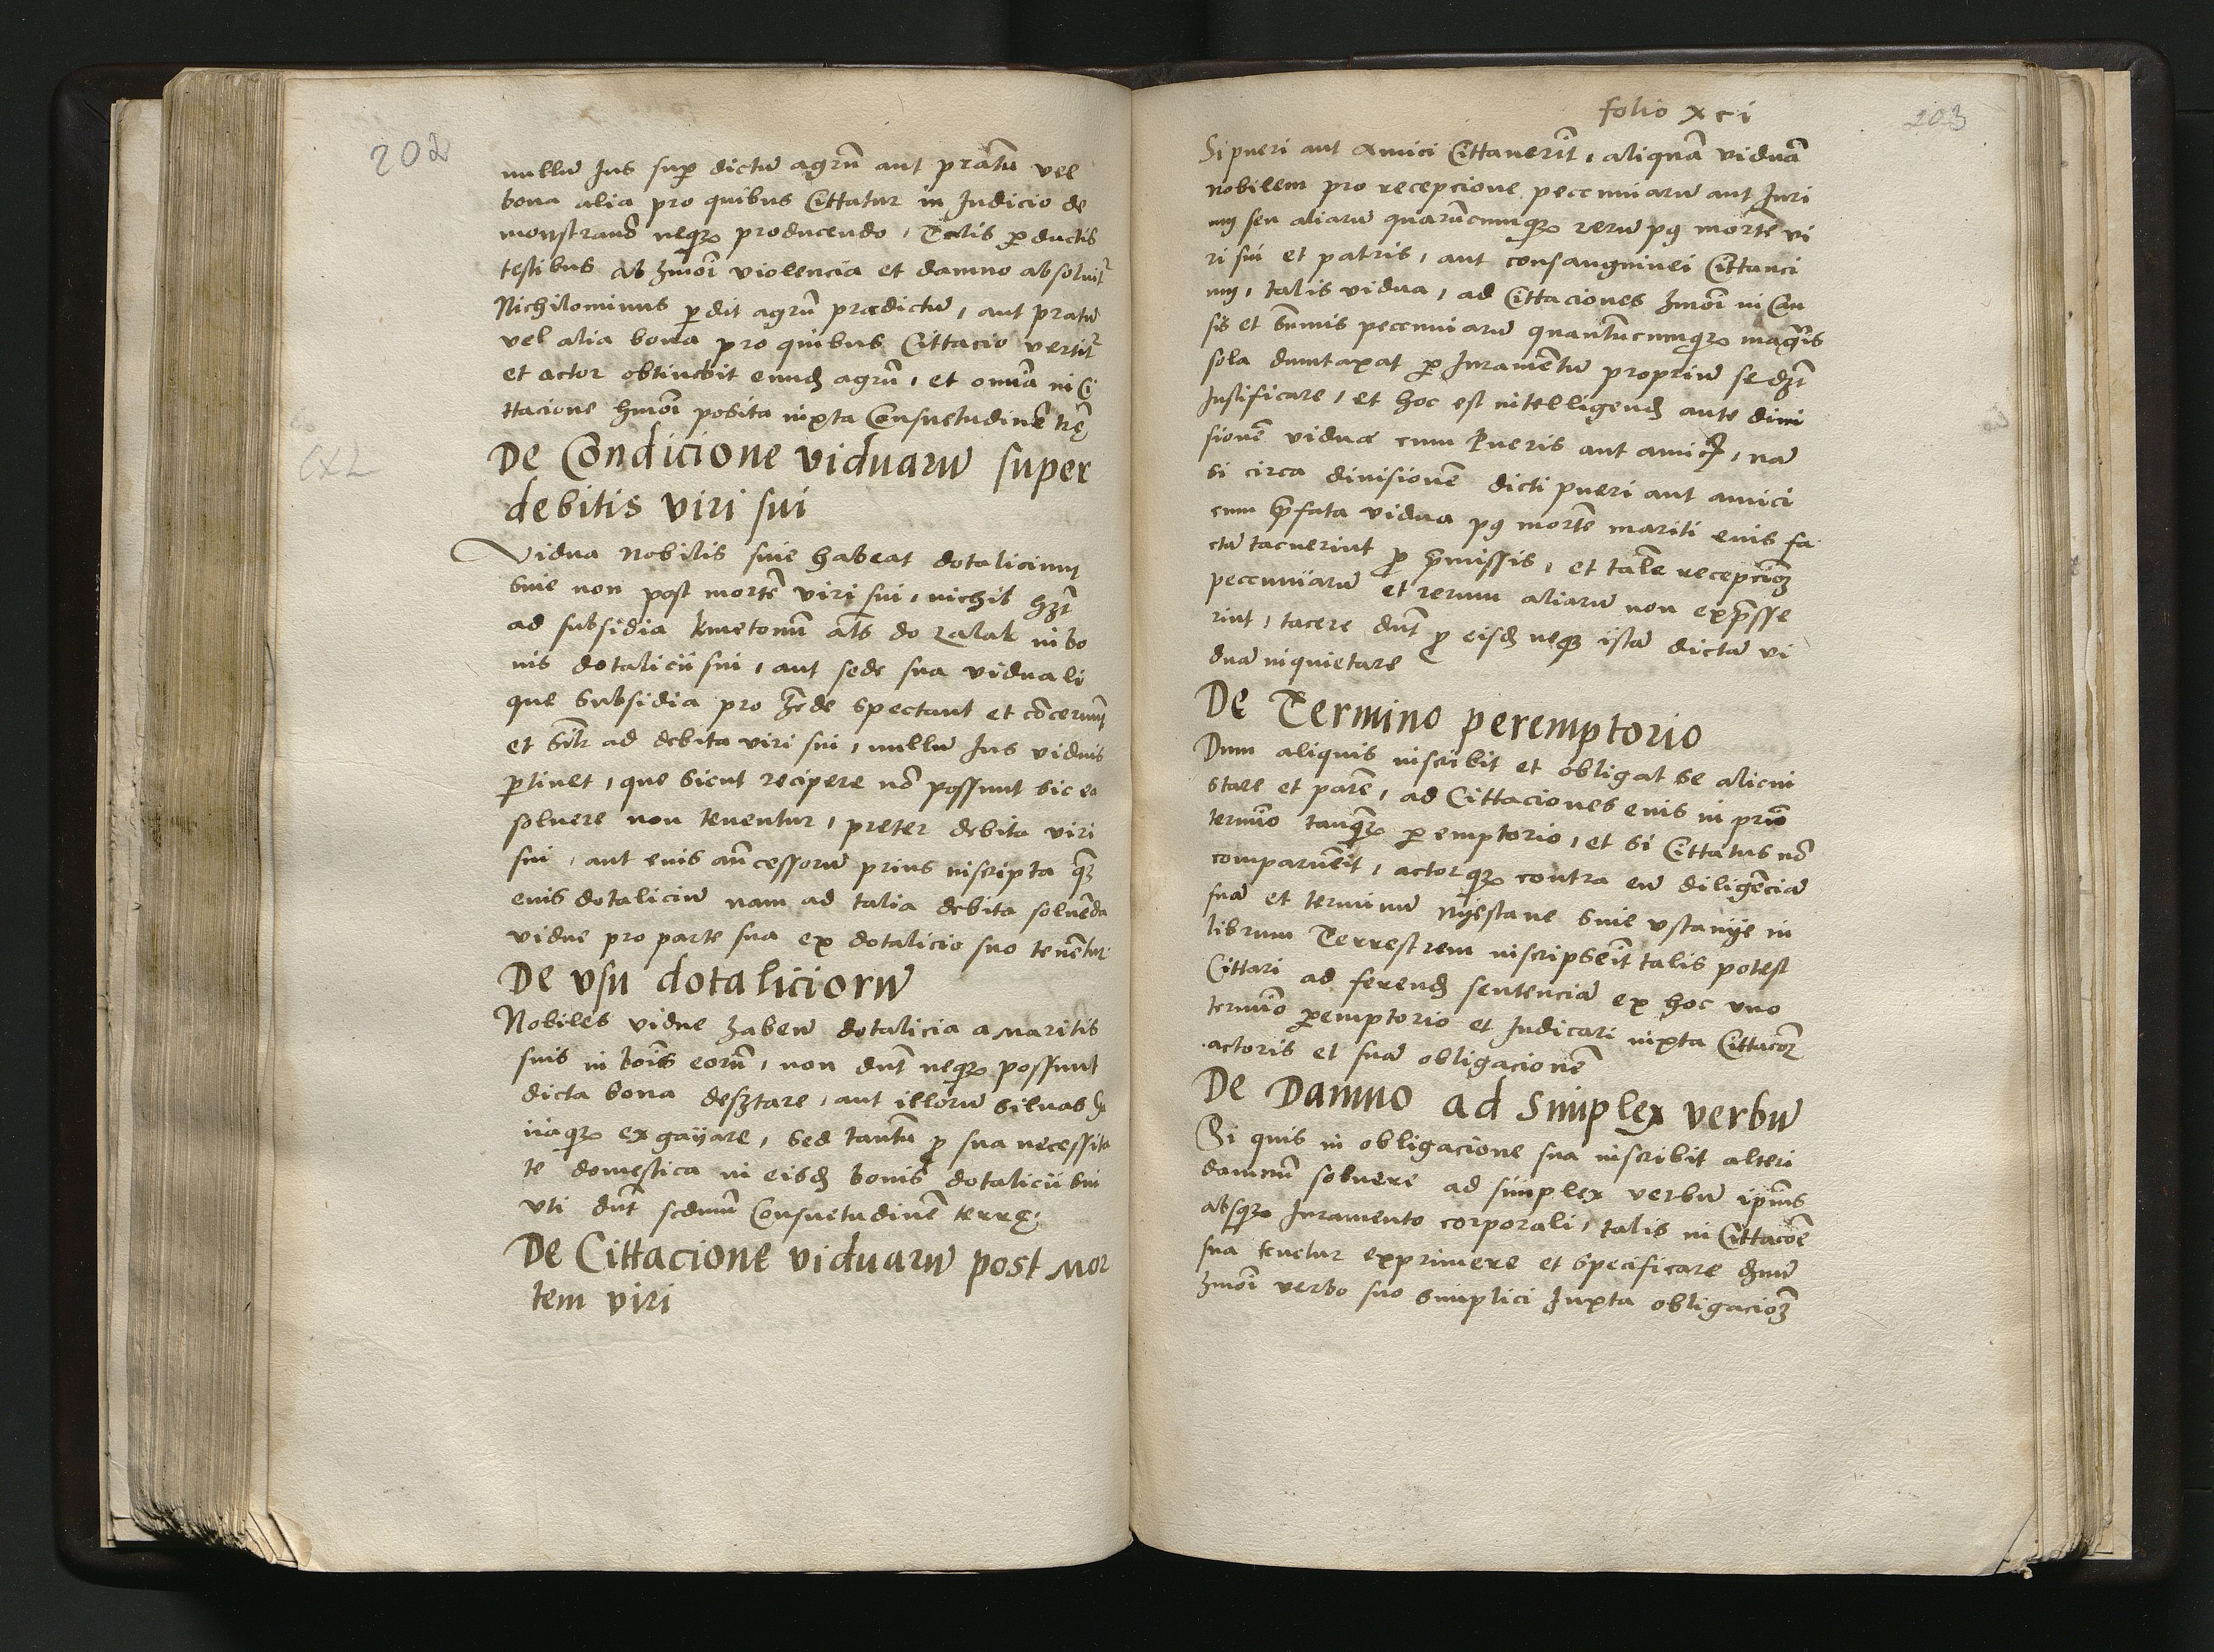 202
nullū Jus sup dictū agrū aut pratū vel
bona alia pro quibus Cittatur in Judicio de
monstrando neqȝ producendo, Talis pductis
testibus ab hmōi violencia et damno absoluit᷑
Nichilominus pdit agrū prædictū, aut pratū
vel alia bona pro quibus Cittacio vertit᷑
et actor obtinebit eundē agrū, et omīa in Ci
ttacione hmōi posita iuxta Consuetudinē trę
CXL
De Condicione viduarū super
debitis viri sui
Vidua Nobilis siue habeat dotalicium
siue non post mortē viri sui, nichil hȝt
ad subsidia kmetonū als do zalak in bo
nis dotalicii sui, aut sede sua viduali
que subsidia pro hērede spectant et cōcernunt
et silr ad debita viri sui, nullū Jus viduis
ptinet, que sicut recipere nō possunt sic ea
soluere non tenentur, preter debita viri
sui, aut euis āncessorū prius inscripta qȝ
euis dotaliciū nam ad talia debita soluēda
vidue pro parte sua ex dotalicio suo tenētur
De vsu dotaliciorū
Nobiles vidue habentū dotalicia a maritis
suis in boīs eorū, non dnt neqȝ possunt
dicta bona desȝtare, aut illorū siluas
naqȝ exgaijare, sed tantū p sua necessita
te domestica in eisdē bonis dotalicii sui
vti dnt scdmū Consuetudinē terrę:
De Cittacione viduarū post mor
tem viri
folio xci
203
Si pueri aut Amici Cittauerīt, aliquā viduā
nobilem pro recepcione peccuniarū aut Juri
um seu aliarū quarūcumqȝ rerū pꝯ mortē vi
ri sui et patris, aut consanguinei Cittanci
um, talis vidua, ad Cittaciones hmōi in Cau
sis et sūmis peccuniarū quantūcumqȝ magīs
sola dumtaxat p Juramētū propriū se dȝt
Justificare, et hoc est intelligendē ante diui
sionē viduæ cum Pueris aut amicis, nā
si circa diuisionē dicti pueri aut amici
cum pfata vidua pꝯ mortē mariti euis fa
ctā tacuerint p pmissis, et talē recepcionȝ
peccuniarū et rerum aliarū non expsse
rint, tacere dnt p eisdē neqȝ istā dictā vi
duā inquietare
De Termino peremptorio
Dum aliquis inscribit et obligat se alicui
stare et parē, ad Cittaciones euis in prīo
termīo tanqȝ pemptorio, et si Cittatus nō
comparuēit, actorqȝ contra eū diligēciā
suā et terminū nijestane siue vstanije in
librum Terrestrem inscripsēit talis potest
Cittari ad ferendē sentenciā ex hoc vno
termīo pemptorio et Judicari iuxta Cittacoȝ
actoris et suā obligacionē
De Damno ad simplex verbū
Si quis in obligacione sua inscribit alteri
damnū soluere ad simplex verbū ipīus
absqȝ Juramento corporali, talis in Cittacōe
sua tenetur exprimere et specificare dmnū
hmōi verbo suo simplici Juxta obligacioȝ